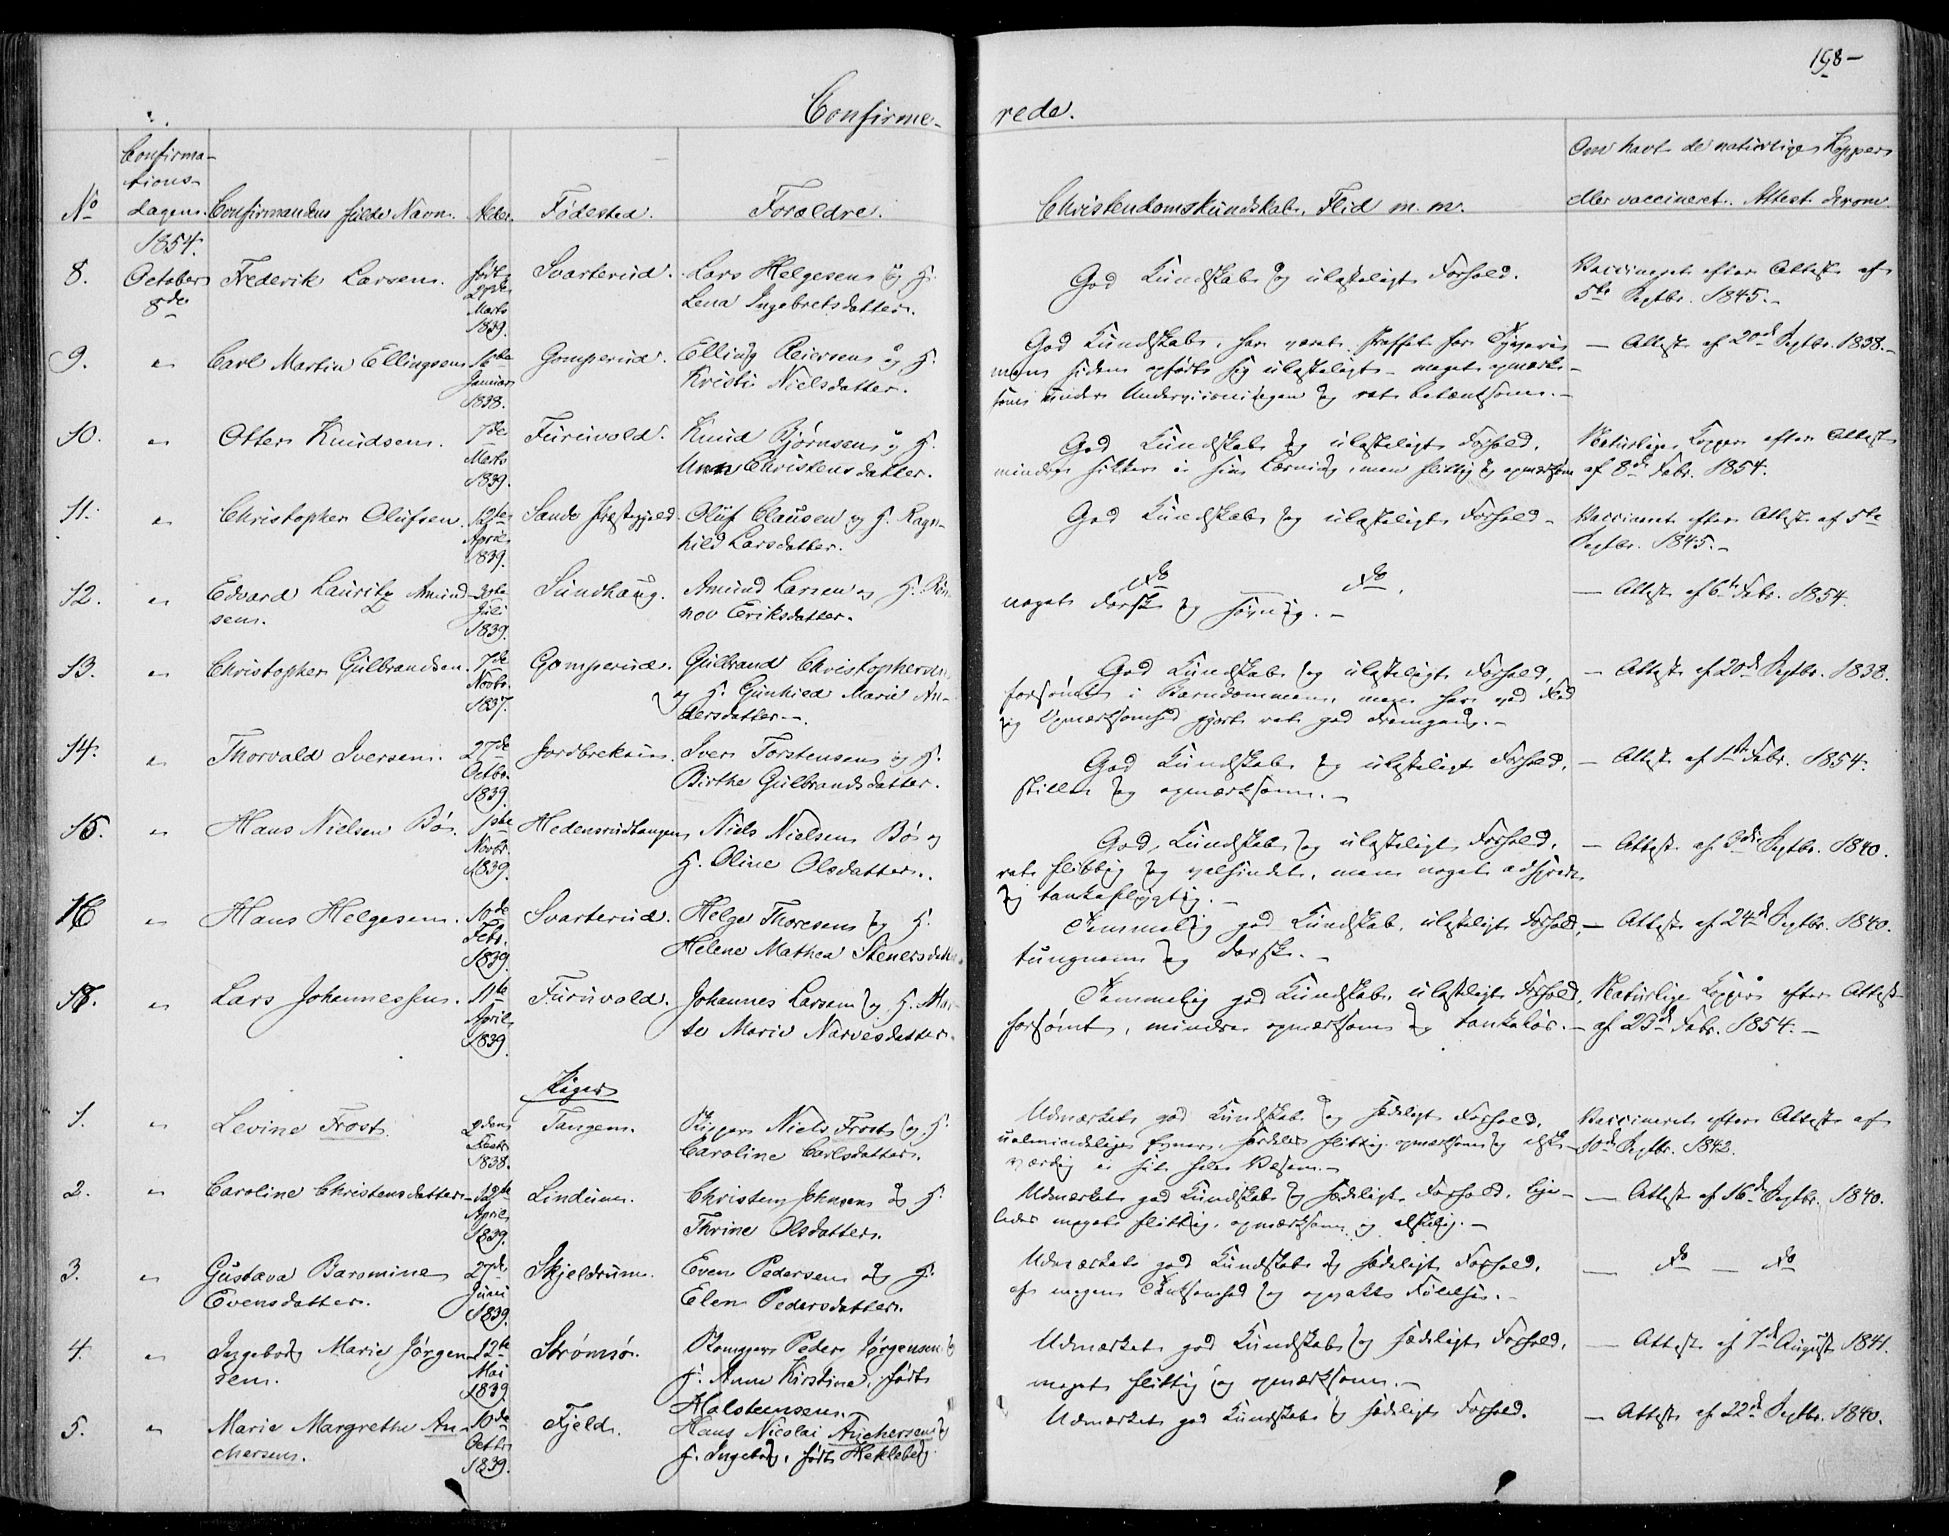 198 -
Confirme- rede.
No
Confirma-
tions-
dagen.
Confirmandens fulde Navn.
Alder.
Fødested.
Forældre.
Christendomskundskab, Flid m. m.
Om havt de naturlige Kopper
eller vaccineret. Attest derom.
1854.
8. October 8de Frederik Larsen. født 27de Marts 1839. Svarterud. Lars Helgesen og H.
Lena Ingebretsdatter.
God Kundskab og ulasteligt Forhold.
Vaccineret efter Attest af
5te Septbr. 1845.-
9. " Carl Martin Ellingsen 16de Januar 1838. Gomperud. Elling Reiersen og H.
Kristi Nielsdatter.
God Kundskab, har været straffet for Tyveri
men siden opført sig ulasteligt - meget opmærk-
som under Undervisningen og ret betænksom.-
- Attest af 20de Septbr. 1838.-
10. " Otter Knudsen. 7de Marts 1839. Furuvald. Knud Bjørnsen og H.
Anne Christensdatter.
God Kundskab og ulasteligt Forhold,
mindre sikker i sin Læsning, men flittig og opmærksom
Naturlige Kopper efter Attest
af 8de Febr. 1854.
11. " Christopher Olufsen. 12te April 1839. Sande Præstegjeld. Oluf Clausen og H. Ragn-
hild Larsdatter.
God Kundskab og ulasteligt Forhold -
Vaccineret efter Attest af 5te
Septbr. 1845.-
12. " Edvard Lauritz Amund-
sen. 30te Juli 1839. Sundhaug. Amund Larsen og H. Røn-
nov Eriksdatter.
do - do.
noget dorsk og søvnig.-
- Attest af 6te Febr. 1854.
13. " Christopher Gulbrandsen. 7de Novbr. 1837. Gomperud. Gulbrand Christophersen
og H. Gunhild Marie An-
dersdatter.-
God Kundskab og ulasteligt Forhold,
forsømt i Barndommen, men har ved Flid
og Opmærksomhed gjort ret god Fremgang.-
- Attest af 20de Septbr. 1838.
14. " Thorvald Iversen. 27de Octbr. 1839. Jordbrekken. Iver Torstensen og H.
Birthe Gulbrandsdatter.
God Kundskab og ulasteligt Forhold,
stille og opmærksom.-
- Attest af 1ste Febr. 1854.
15. " Hans Nielsen Bø. 1ste Novbr. 1839. Hedensrudtangen. Niels Nielsen Bø og
H. Oline Olsdatter.
God Kundskab og ulasteligt Forhold,
ret flittig og velsindet, men noget adspredt
og tankeflygtig.-
- Attest af 3de Septbr. 1840.
16. " Hans Helgesen. 10de Febr. 1839. Svarterud. Helge Thoresen og H.
Helene Mathea Stenersdatter.
Temmelig god Kundskab, ulasteligt Forhold,
tungnem og dorsk.-
- Attest af 24de Septbr. 1840.
17. " Lars Johannessen. 11te April 1839. Furuvald. Johannes Larsen og H. Mar-
te Marie Narvesdatter.
Temmelig god Kundskab, ulasteligt Forhold,
forsømt, mindre opmærksom og tankeløs.-
Naturlige Kopper efter Attest
af 23de Febr. 1854.-
Piger
1. " Levine Frost. 1838. Tangen. Niels Frost og H.
Caroline Carlsdatter.
Udmærket god Kundskab og sædeligt Forhold,
ualmindelige Evner, særdeles flittig, opmærksom og elsk-
værdig i sit hele Væsen.-
Vaccineret efter Attest af
10de Septbr. 1842.
2. " Caroline Christensdatter. 12te April 1839. Lindum. Christen Johnsen og H.
Thrine Olsdatter.
Udmærket god Kundskab og sædeligt Forhold, lige-
ledes meget flittig, opmærksom og elskelig.-
- Attest af 16de Septbr. 1840.
3. " Gustava Baromine
Evensdatter. 27de Juni 1839. Skjeldrum. Even Pedersen og H.
Elen Pedersdatter.
Udmærket god Kundskab og sædeligt Forhold,
af megen Tænksomhed og opvakt Følelse.-
- do - do
4. " Ingeborg Marie Jørgen-
sen. 12te Mai 1839. Strømsø. Peder Jørgensen og
H. Anne Kirstine, født
Holstensen.
Udmærket god Kundskab og sædeligt Forhold,
meget flittig og opmærksom.-
- Attest af 7de August 1841.
5. " Marie Margrethe An-
chersen. 10de Octbr. 1839. Fjeld. Hans Nicolai Anchersen og
H. Ingeborg, født Hekleberg.
Udmærket god Kundskab og sædeligt Forhold.
- Attest af 22de Septbr. 1840.